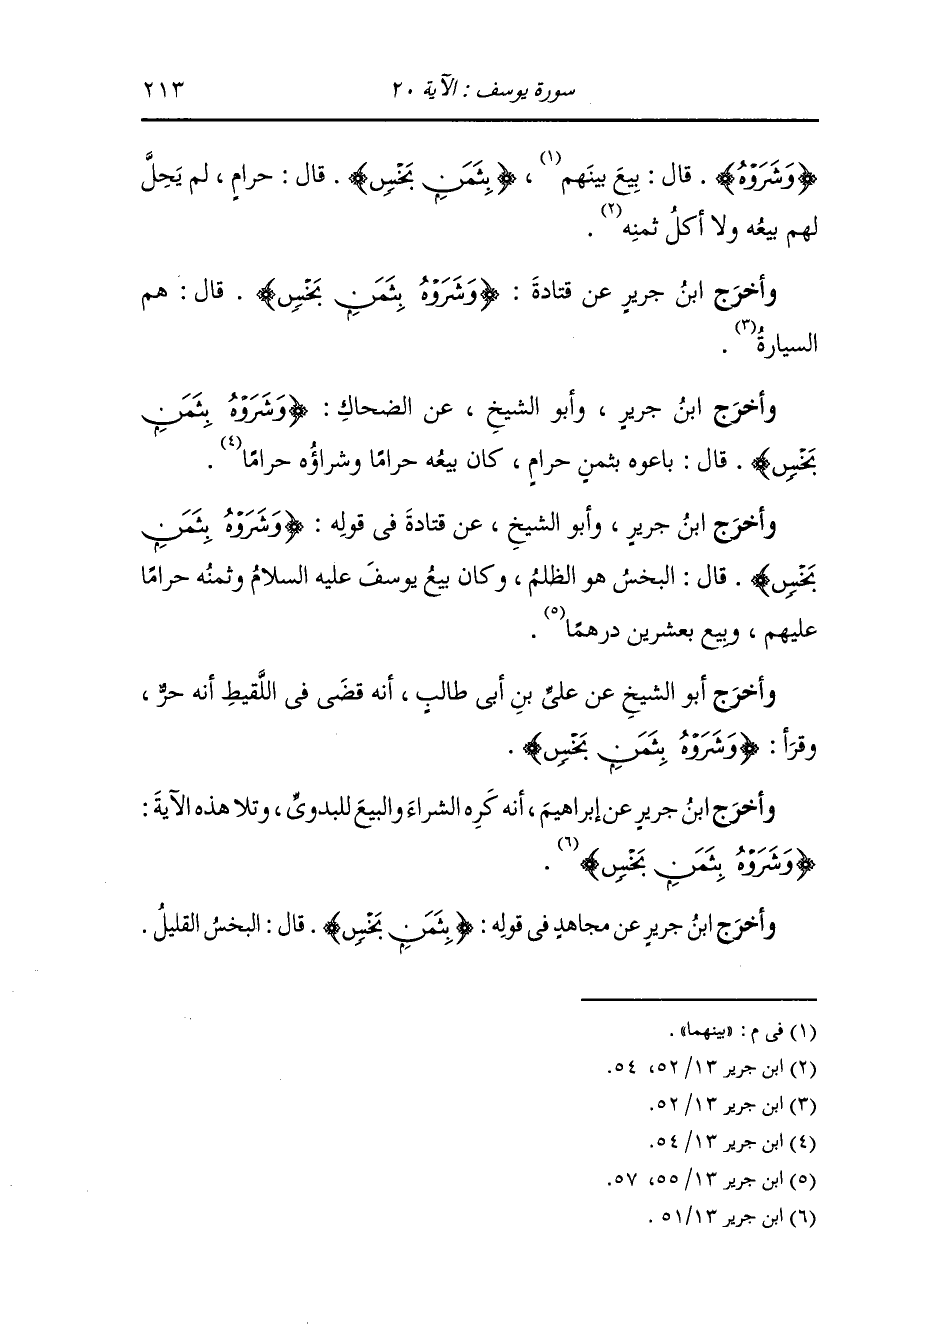 سورة يوسف : الآية ٢٠ ٢١٣
﴿وَشَرَوْهُ﴾ . قال : بِيعَ بينَهم(١) ، ﴿بِثَمَنٍ بَخْسٍ﴾ . قال : حرامٍ ، لم يَحِلَّ
لهم بيعُه ولا أكلُ ثمنِه(٢) .
وأخرَج ابنُ جريرٍ عن قتادةَ : ﴿وَشَرَوْهُ بِثَمَنٍ بَخْسٍ﴾ . قال : هم
السيارةُ(٣) .
وأخرَج ابنُ جريرٍ ، وأبو الشيخِ ، عن الضحاكِ : ﴿وَشَرَوْهُ بِثَمَنٍ
بَخْسٍ﴾ . قال : باعوه بثمنٍ حرامٍ ، كان بيعُه حرامًا وشراؤُه حرامًا(٤) .
وأخرَج ابنُ جريرٍ ، وأبو الشيخِ ، عن قتادةَ فى قولِه : ﴿وَشَرَوْهُ بِثَمَنٍ
بَخْسٍ﴾ . قال : البخسُ هو الظلمُ ، وكان بيعُ يوسفَ عليه السلامُ وثمنُه حرامًا
عليهم ، وبِيع بعشرين درهمًا(٥) .
وأخرَج أبو الشيخِ عن علىِّ بنِ أبى طالبٍ ، أنه قضَى فى اللَّقيطِ أنه حرٌّ ،
وقرَأ : ﴿وَشَرَوْهُ بِثَمَنٍ بَخْسٍ﴾ .
وأخرَج ابنُ جريرٍ عن إبراهيمَ ، أنه كَرِه الشراءَ والبيعَ للبدوىِّ ، وتلا هذه الآيةَ :
﴿وَشَرَوْهُ بِثَمَنٍ بَخْسٍ﴾(٦) .
وأخرَج ابنُ جريرٍ عن مجاهدٍ فى قولِه : ﴿بِثَمَنٍ بَخْسٍ﴾ . قال : البخسُ القليلُ .
(١) فى م : «بينهما» .
(٢) ابن جرير ١٣/ ٥٢، ٥٤.
(٣) ابن جرير ١٣/ ٥٢.
(٤) ابن جرير ١٣/ ٥٤.
(٥) ابن جرير ١٣/ ٥٥، ٥٧.
(٦) ابن جرير ١٣/ ٥١ .